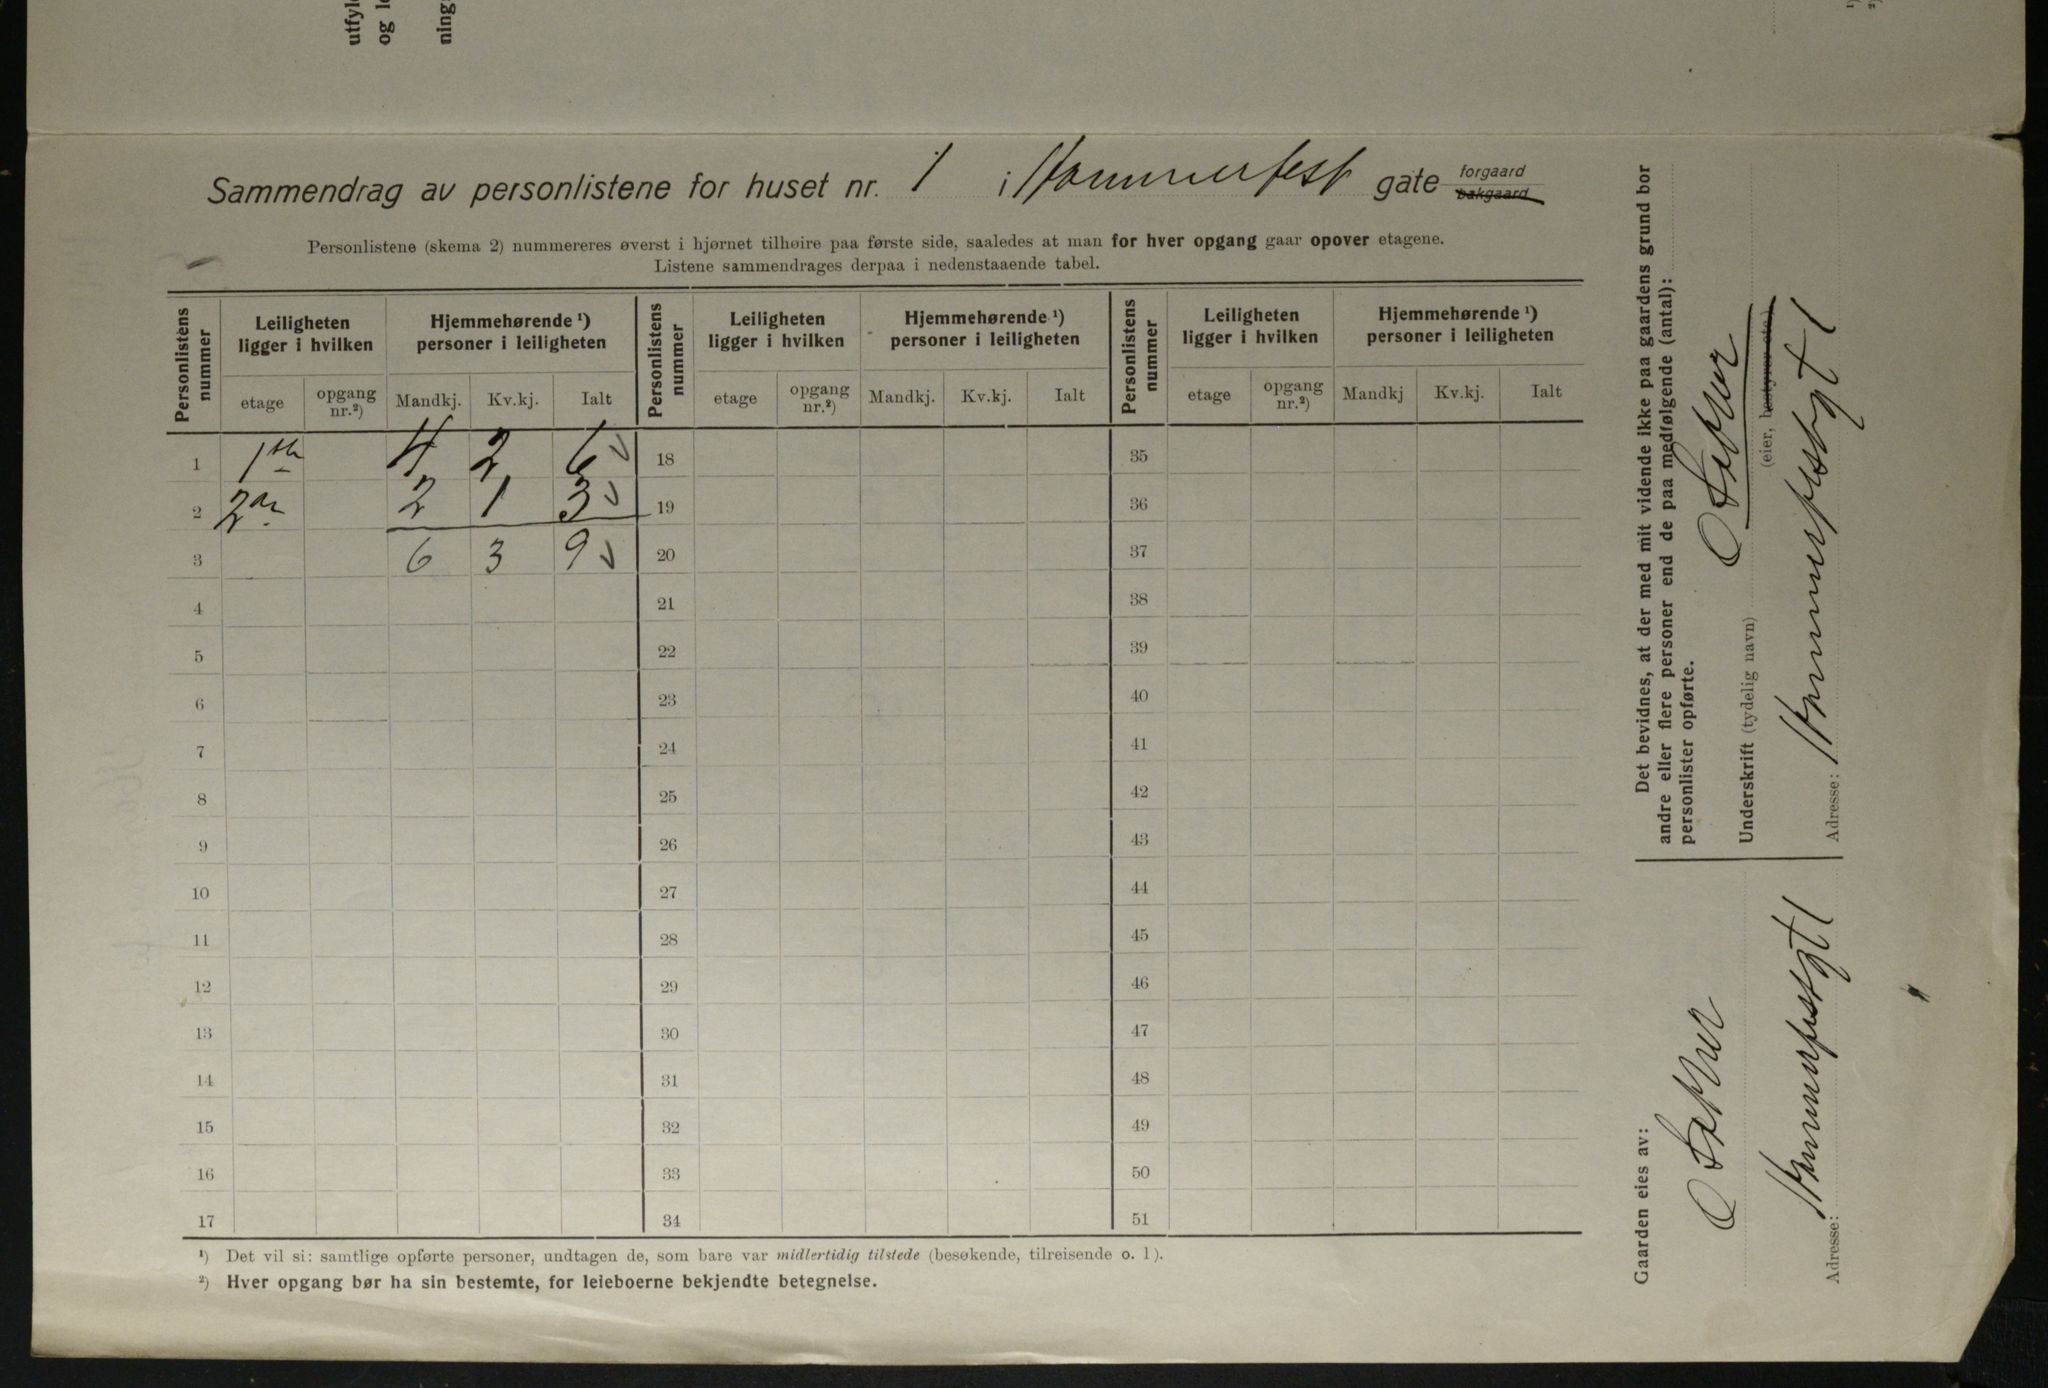 utfyld
og le
ning
¹)
²)
Sammendrag av personlistene for huset nr. 1 i Hammerfest gate forgaard
bakgaard
Personlistene (skema 2) nummereres øverst i hjørnet tilhøire paa første side, saaledes at man for hver opgang gaar opover etagene.
Listene sammendrages derpaa i nedenstaaende tabel.
Personlistens nummer Leiligheten ligger i hvilken Hjemmehørende ¹) personer i leiligheten Personlistens nummer Leiligheten ligger i hvilken Hjemmehørende ¹) personer i leiligheten Personlistens nummer Leiligheten ligger i hvilken Hjemmehørende ¹) personer i leiligheten
etage opgang nr.²) Mandkj. Kv.kj. Ialt etage opgang nr.²) Mandkj. Kv.kj. Ialt etage opgang nr.²) Mandkj Kv.kj. Ialt
1 1ste 4 2 6 18 35
2 2 2 1 3 19 36
3 6 3 9 20 37
4 21 38
5 22 39
6 23 40
7 24 41
8 25 42
9 26 43
10 27 44
11 28 45
12 29 46
13 30 47
14 31 48
15 32 49
16 33 50
17 34 51
¹) Det vil si: samtlige opførte personer, undtagen de, som bare var midlertidig tilstede (besøkende, tilreisende o. l).
²) Hver opgang bør ha sin bestemte, for leieboerne bekjendte betegnelse.
Det bevidnes, at der med mit vidende ikke paa gaardens grund bor
andre eller flere personer end de paa medfølgende (antal):
personlister opførte.
Underskrift (tydelig navn) O
(eier, bestyrer etc.)
Adresse: Hammerfestgt 1
Gaarden eies av:
O
Adresse: Hammerfestgt 1